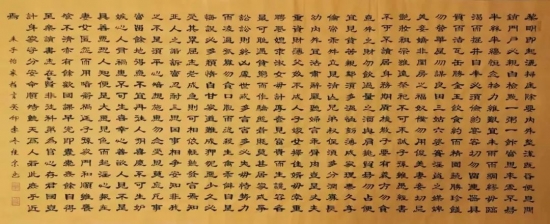 黎明即起灑掃庭除要內外整潔既昏便息關
鎖門戶必親自檢點一粥一飯當思來處不易
半絲半縷恆念物力維艱宜未雨而綢繆毋臨
渴而掘井自奉必須儉約宴客切勿留連器具
質而潔瓦缶勝金玉飲食約而精園蔬愈珍饈
勿營華屋勿謀良田三姑六婆實淫盜之媒婢
美妾嬌非閨房之福奴僕勿用俊美妻妾切忌
艷妝祖宗雖遠祭祀不可不誠子孫雖愚經書
不可不讀居身務期質樸教子要有義方勿貪
意外之財勿飲過量之酒與肩挑貿易勿占便
宜見貧苦親鄰須多溫恤刻薄成家理無久享
倫常乖舛立見消亡兄弟叔姪須分多潤寡長
幼內外宜法肅辭嚴聽婦言乖骨肉豈是丈夫
重資財薄父母不成人子嫁女擇佳婿毋索重
聘娶媳求淑女勿計厚奩見富貴而生諂容者
最可恥遇貧窮而作驕態者賤莫甚居家戒爭
訟訟則終凶處世戒多言言多必失毋恃勢力
而凌逼孤寡勿貪口腹而恣殺牲禽乖僻自是
悔誤必多頹惰自甘家道難成狎暱惡少久必
受其累屈志老成急則可相依輕聽發言安知非
人之譖訴當忍耐三思因事相爭安知非我
之不是須平心暗想施惠無念受恩莫忘凡事
當留餘地得意不宜再往人有喜慶不可生妒
嫉心人有禍患不可生喜幸心善欲人見不是
真善惡恐人知便是大惡見色而起淫心報在
妻女匿怨而用暗箭禍延子孫家門和順雖饔
飧不濟亦有餘歡國課早完即囊橐無餘自得
至樂讀書志在聖賢為官心存君國豈
計身家守分安命順時聽天為人若此庶乎近
焉 朱子 格言